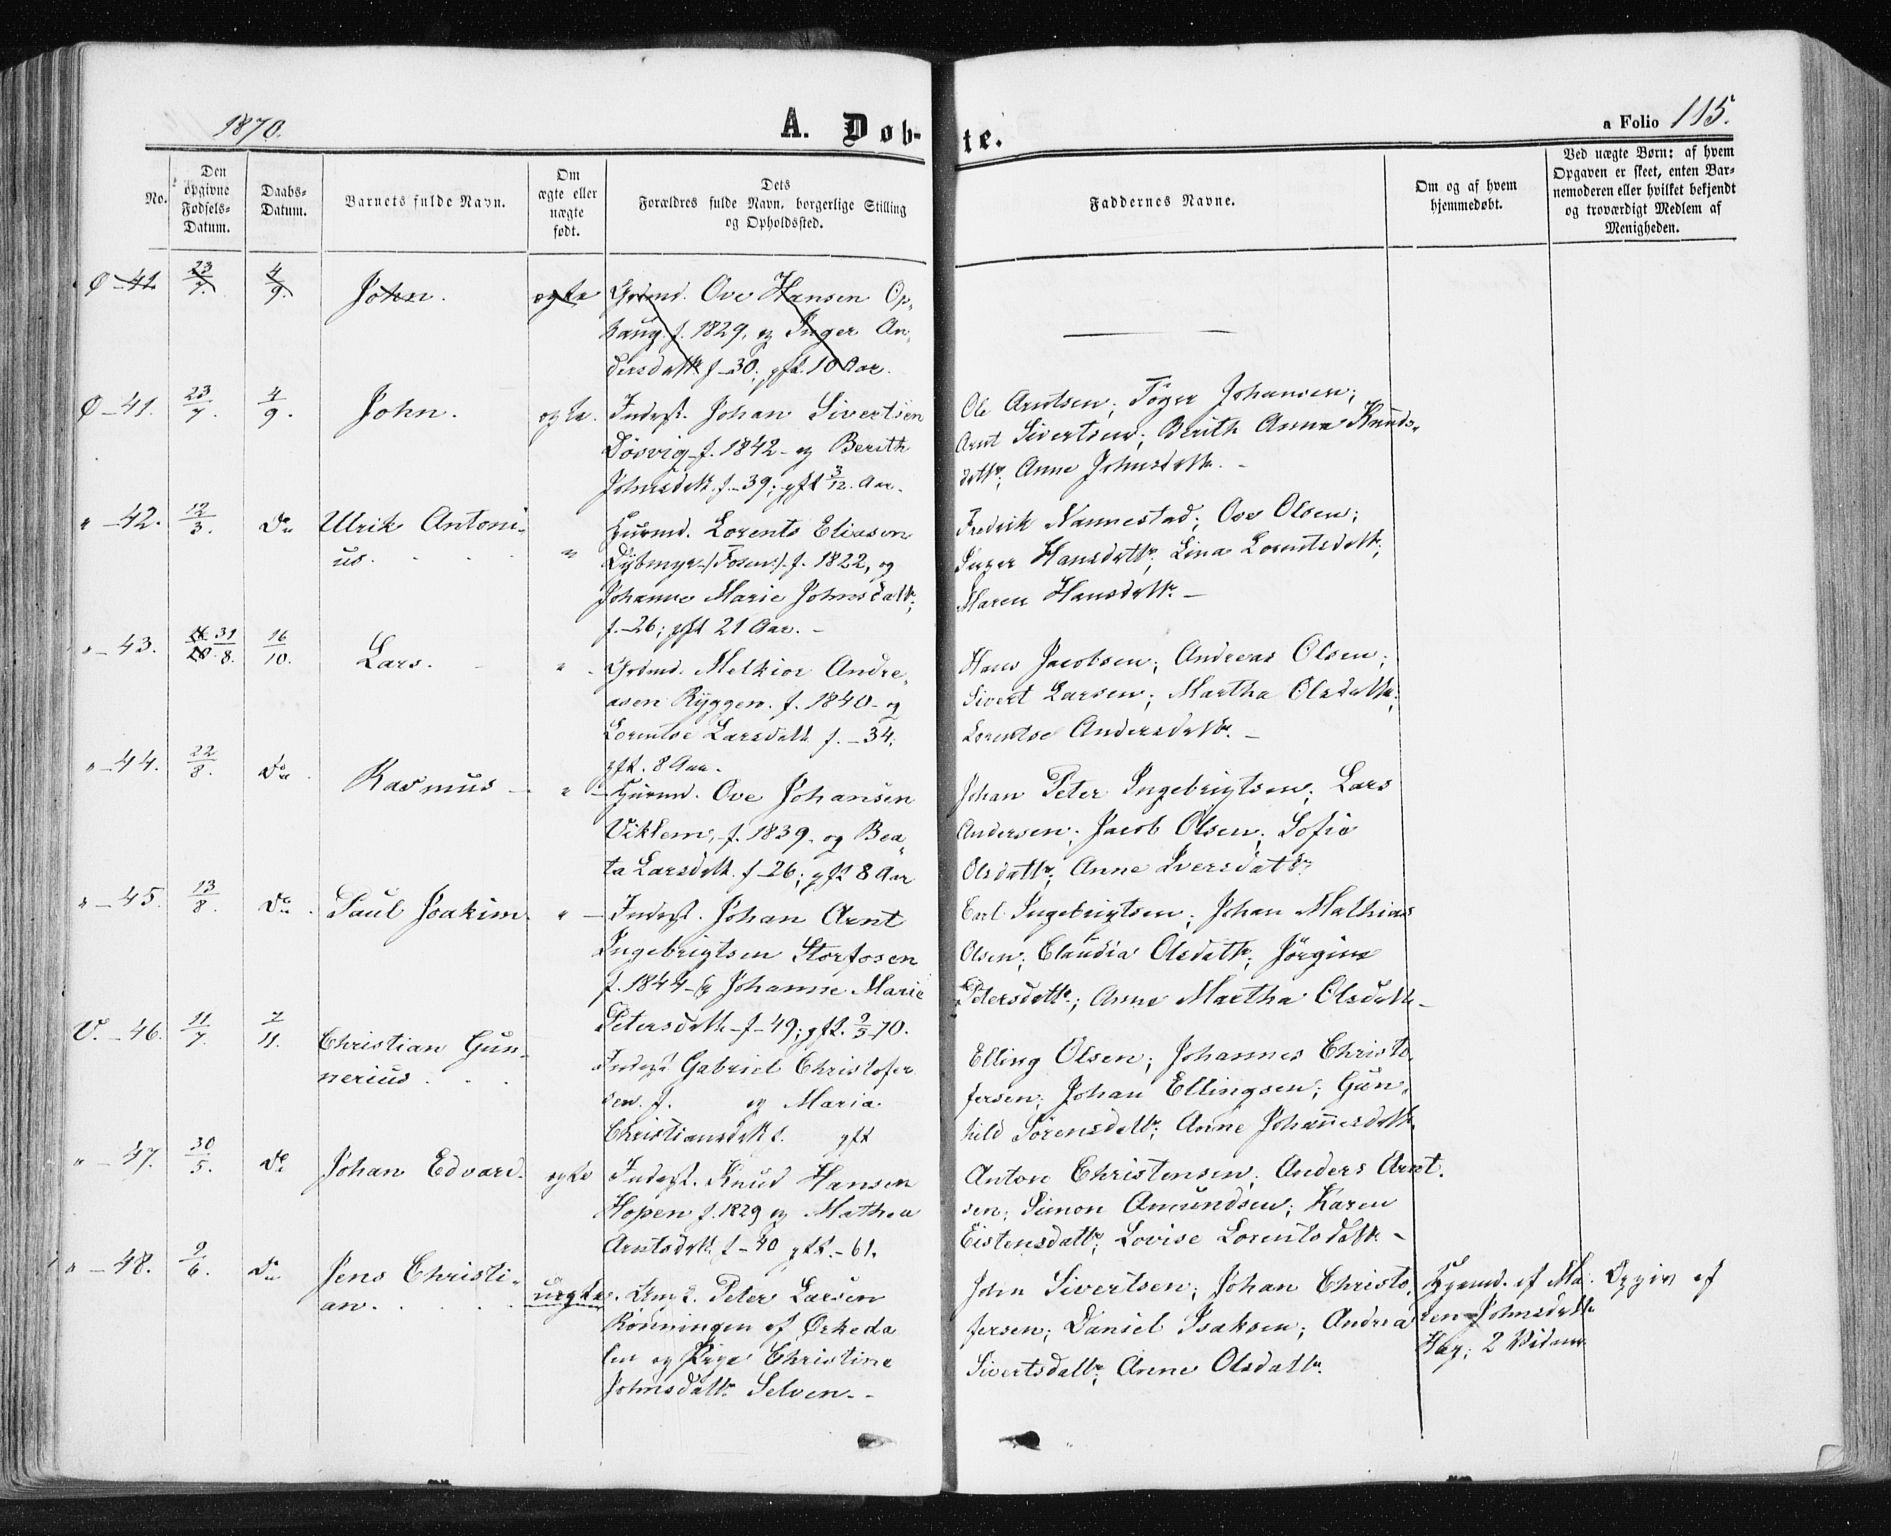 1870.
A. Døb-
te.
a Folio 115.
No.
Den
opgivne
Fødsels-
Datum.
Daabs-
Datum.
Barnets fulde Navn.
Om
ægte eller
uægte
født.
Dets
Forældres fulde Navn, borgerlige Stilling
og Opholdssted.
Faddernes Navne.
Om og af hvem
hjemmedøbt.
Ved uægte Børn: af hvem
Opgaven er skeet, enten Bar-
nemoderen eller hvilket bekjendt
og troværdigt Medlem af
Menigheden.
Ø - 41. 23/7. 4/9. John. ægte Grdmd. Ove Hansen Op-
haug f. 1829, og Inger An-
dersdattr f. -30; gft. 10 Aar.
Ø - 41. 23/7. 4/9. John. ægte. Inderst. Johan Sivertsen
Døsvig f. 1842 - og Berith
Johnsdattr. f. -39; gft 3/12 Aar.
Ole Arntsen; Töger Johansen;
Arnt Sivertsen; Berith Anna Knuds-
dattr; Anne Johnsdattr. -
" - 42. 12/3. Do Ulrik Antoni-
us. " Huusmd. Lorents Eliasen
Dybmyr /Fosen/ f. 1822, og
Johanne Marie Johnsdattr;
f. -26; gft 21 Aar. -
Fredrik Nannestad; Ove Olsen;
Inger Hansdattr; Lina Lorentsdattr;
Maren Hansdattr. -
" - 43. 31/8. 16/10. Lars. " Grdmd. Melkior Andre-
asen Ryggen. f. 1840 - og
Lorentse Larsdattr f. -34;
gft. 8 Aar.
Hans Jacobsen; Andreas Olsen;
Sivert Larsen; Martha Olsdattr;
Lorentse Andersdattr. -
" - 44. 22/8. Do Rasmus - " - Huusmd. Ove Johansen
Viklem, f. 1839. og Bea-
ta Larsdattr. f. -26; gft 8 Aar
Johan Peter Ingebrigtsen; Lars
Andersen; Jacob Olsen; Sofie
Olsdattr; Anne Iversdattr
" - 45. 13/8. Do. Paul Joakim " - Inderst. Johan Arnt
Ingebrigtsen Storfosen
f. 1844 - og Johanne Marie
Petersdattr - f -49; gft. 2/5 70.
Carl Ingebrigtsen; Johan Mathias
Olsen; Claudia Olsdattr; Jörgine
Petersdattr; Anne Martha Olsdattr -
V. - 46. 11/7. 2/11. Christian Gun-
nerius. Inderst Gabriel Christofer
sen. f. og Maria
Christiansdattr f. gft
Elling Olsen; Johannes Christo-
fersen; Johan Ellingsen; Gun-
hild Sörensdattr; Anne Johannesdattr.
" - 47. 30/5. Do Johan Edvard. ægte Inderst. Knud Hansen
Hopen f. 1829 og Mathea
Arntsdattr, f -40 gft. -61.
Anton Christensen; Anders Arnt-
sen; Simon Amundsen; Karen
Eistensdattr; Lovise Lorentsdattr. -
" - 48. 9/6. Do Jens Christi-
an. uægte. Peter Larsen
Rönningen af Ørkeda
len og Pige Christine
Johnsdattr Selven. -
John Sivertsen; Johan Christo-
fersen; Daniel Isaksen; Andrea
Sivertsdattr; Anne Olsdattr.
Hjemd. af Ma-
ren Johnsdattr
Hag; 2 Vidner
Opgiv af